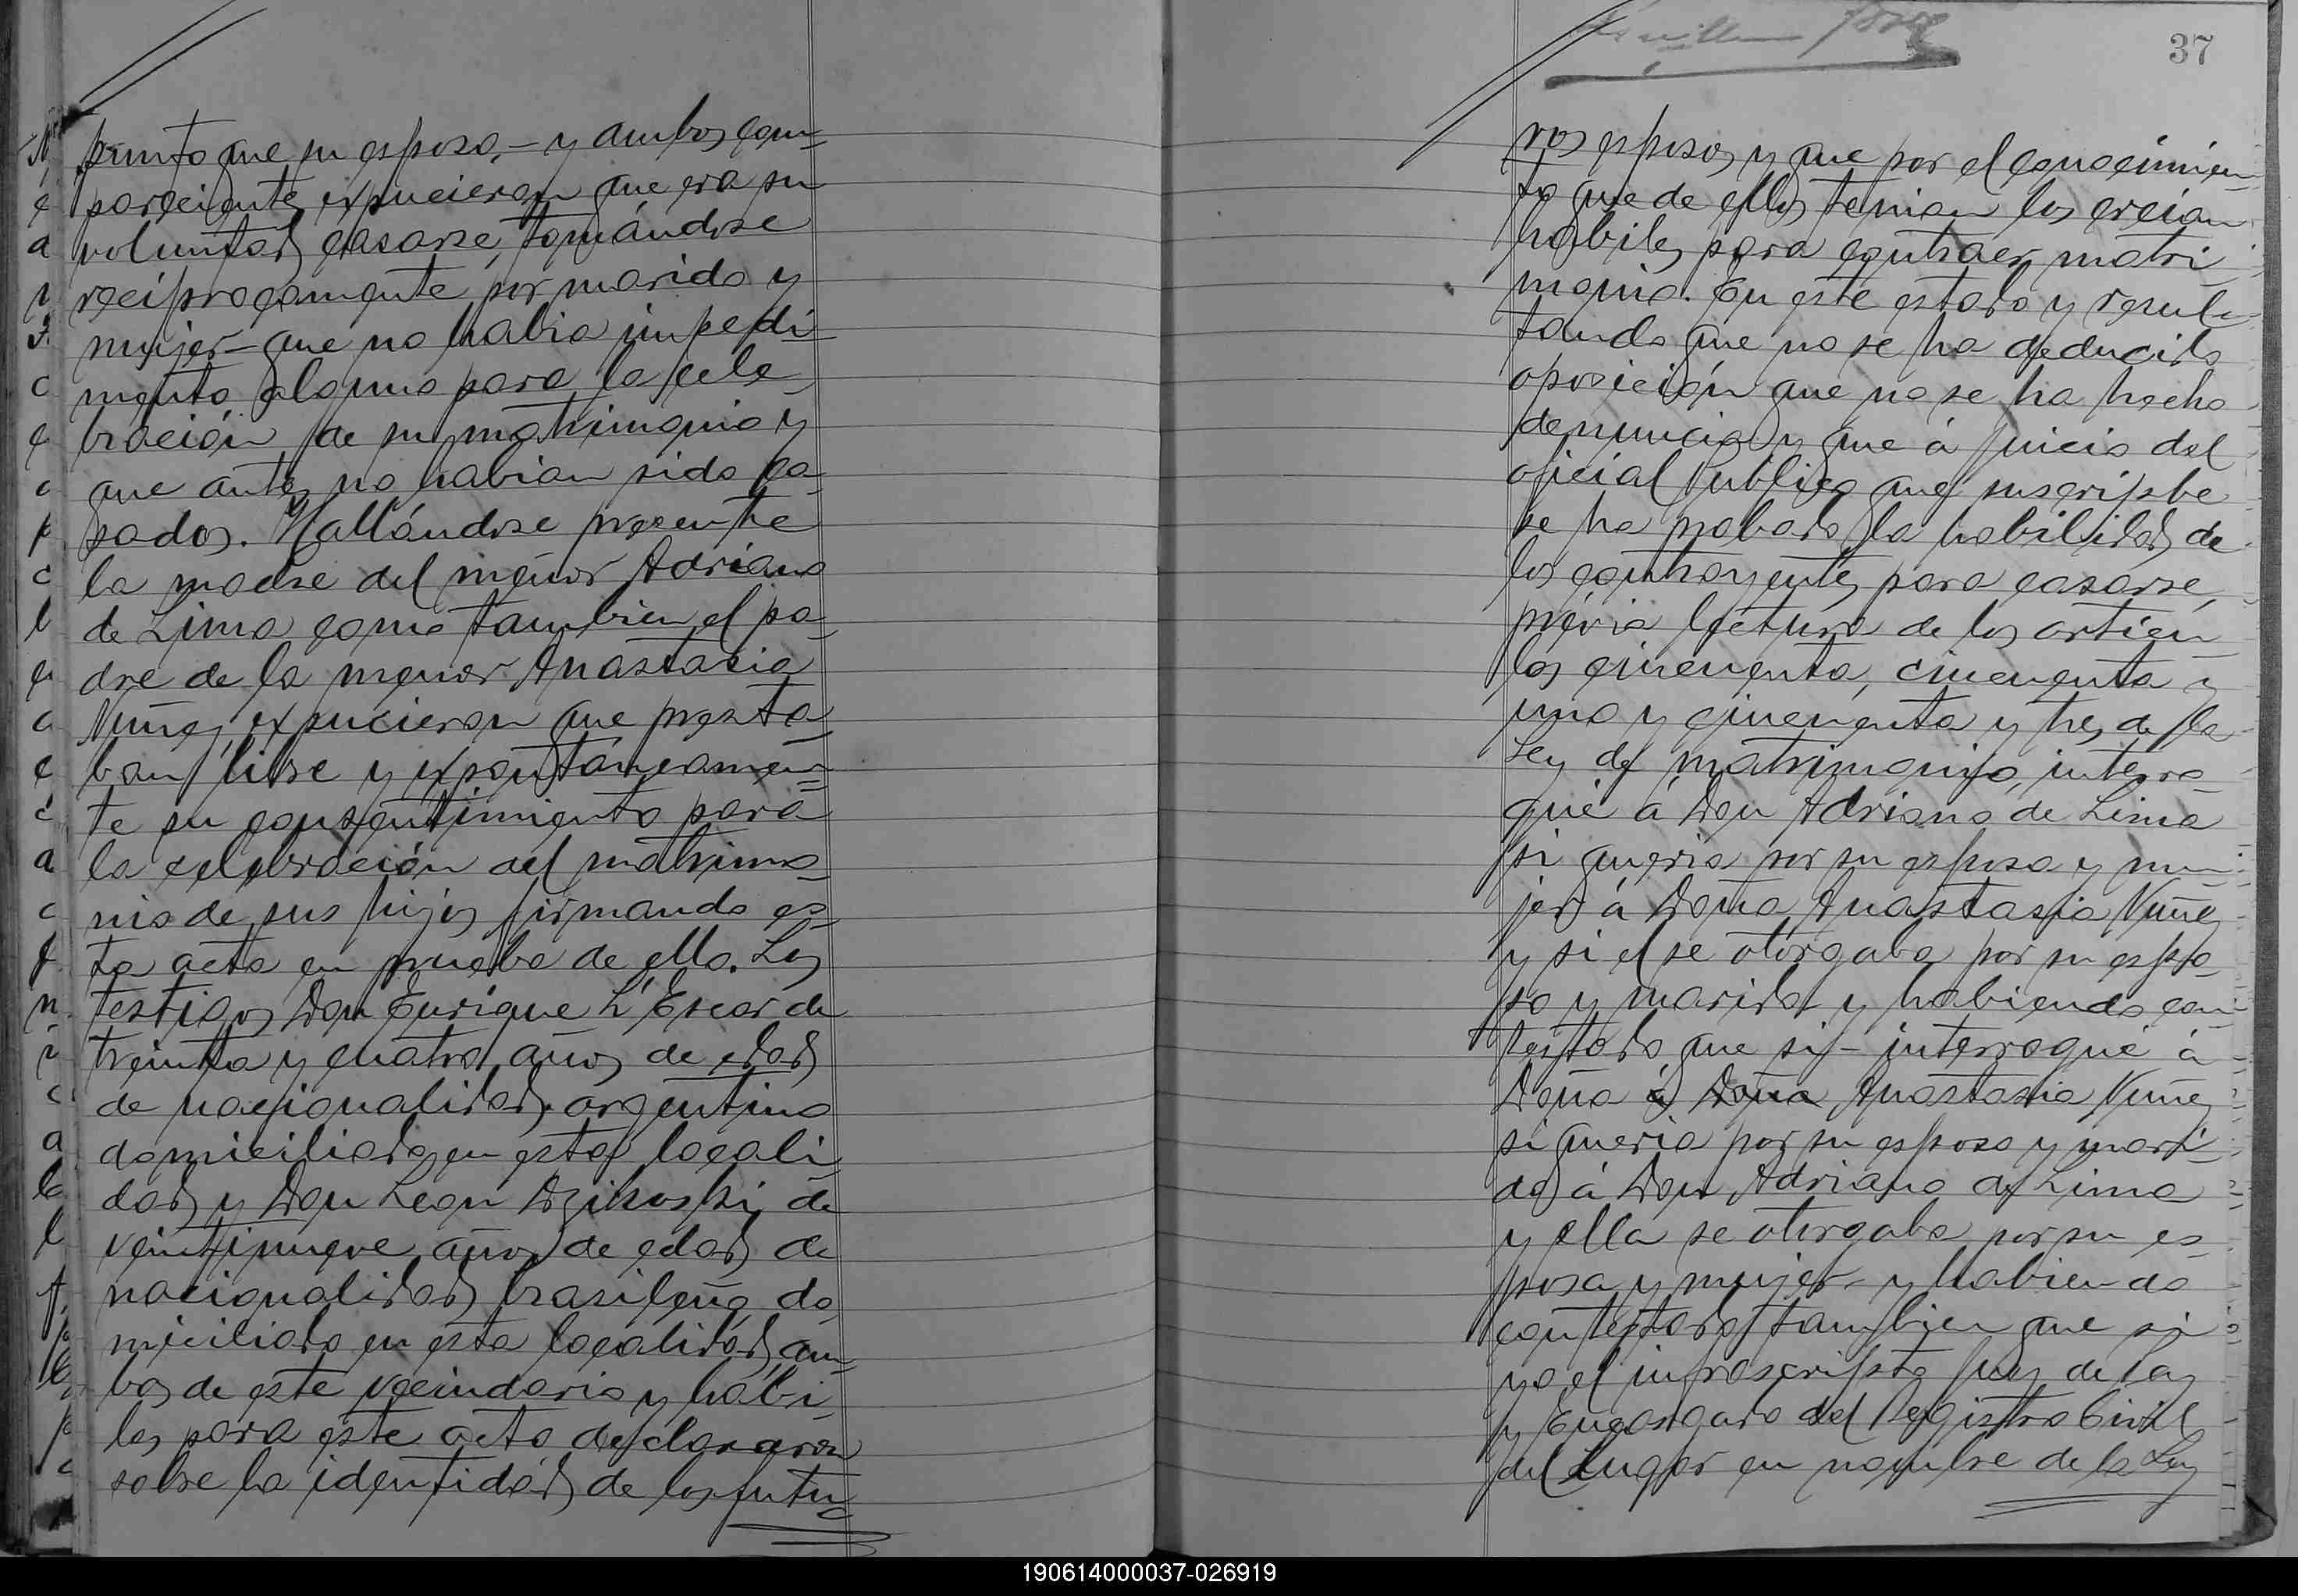 punto que su esposo,- y ambos com-
parecientes expucieron que era su
voluntad casarse, tomándose
reciprocamente por marido y
mujer- que no habia impedi-
mento alguno para la cele-
bración de su matrimonio y
que antes no habian sido ca-
sados. Hallándose presente
la madre del menor Adriano
de Lima como tambien el pa-
dre de la menor Anastacia
Nuñez expucieron que presta-
ban libre y expontáneamen-
te su consentimiento para
la celebración del matrimo-
nio de sus hijos firmando es-
ta acta en prueba de ello. Los
testigos Don Enrique L'Escar de
treinta y cuatro años de edad
de nacionalidad argentina
domiciliado en esta locali-
dad y Don Leon de
veintinueve años de edad de
nacionalidad brasileña do-
miciliado en esta localidad, am-
bos de este vecindario y hábi-
les para este acto declararon
sobre la identidad de los futu-
37
ros esposos y que por el conocimien-
to que de ellos tenian los creian
hábiles para contraer matri-
monio. En este estado y resul-
tando que no se ha deducido
oposición que no se ha hecho
denuncia y que á juicio del
oficial Publico que suscripbe
se ha probado la habilidad de
los contrayentes para casarse,
prévia lectura de los articu-
los cincuenta, cincuenta y
uno y cincuenta y tres de la
Ley de matrimonio, interro-
gué á Don Adriano de Lima
si queria por su esposa y mu-
jer á Doña Anastasia Nuñez
y si el se otorgaba por su espo-
so y marido y habiendo con-
testado que si- interrogué á
Doña á Doña Anastasia Nuñez
si queria por su esposo y mari-
do á Don Adriano de Lima
y ella se otorgaba por su es-
posa y mujer- y habiendo
contestado tambien que si
yo el infrascripto Juez de Paz
y Encargado del Registro Civil
del Lugar en nombre de la Ley
190614000037-026919